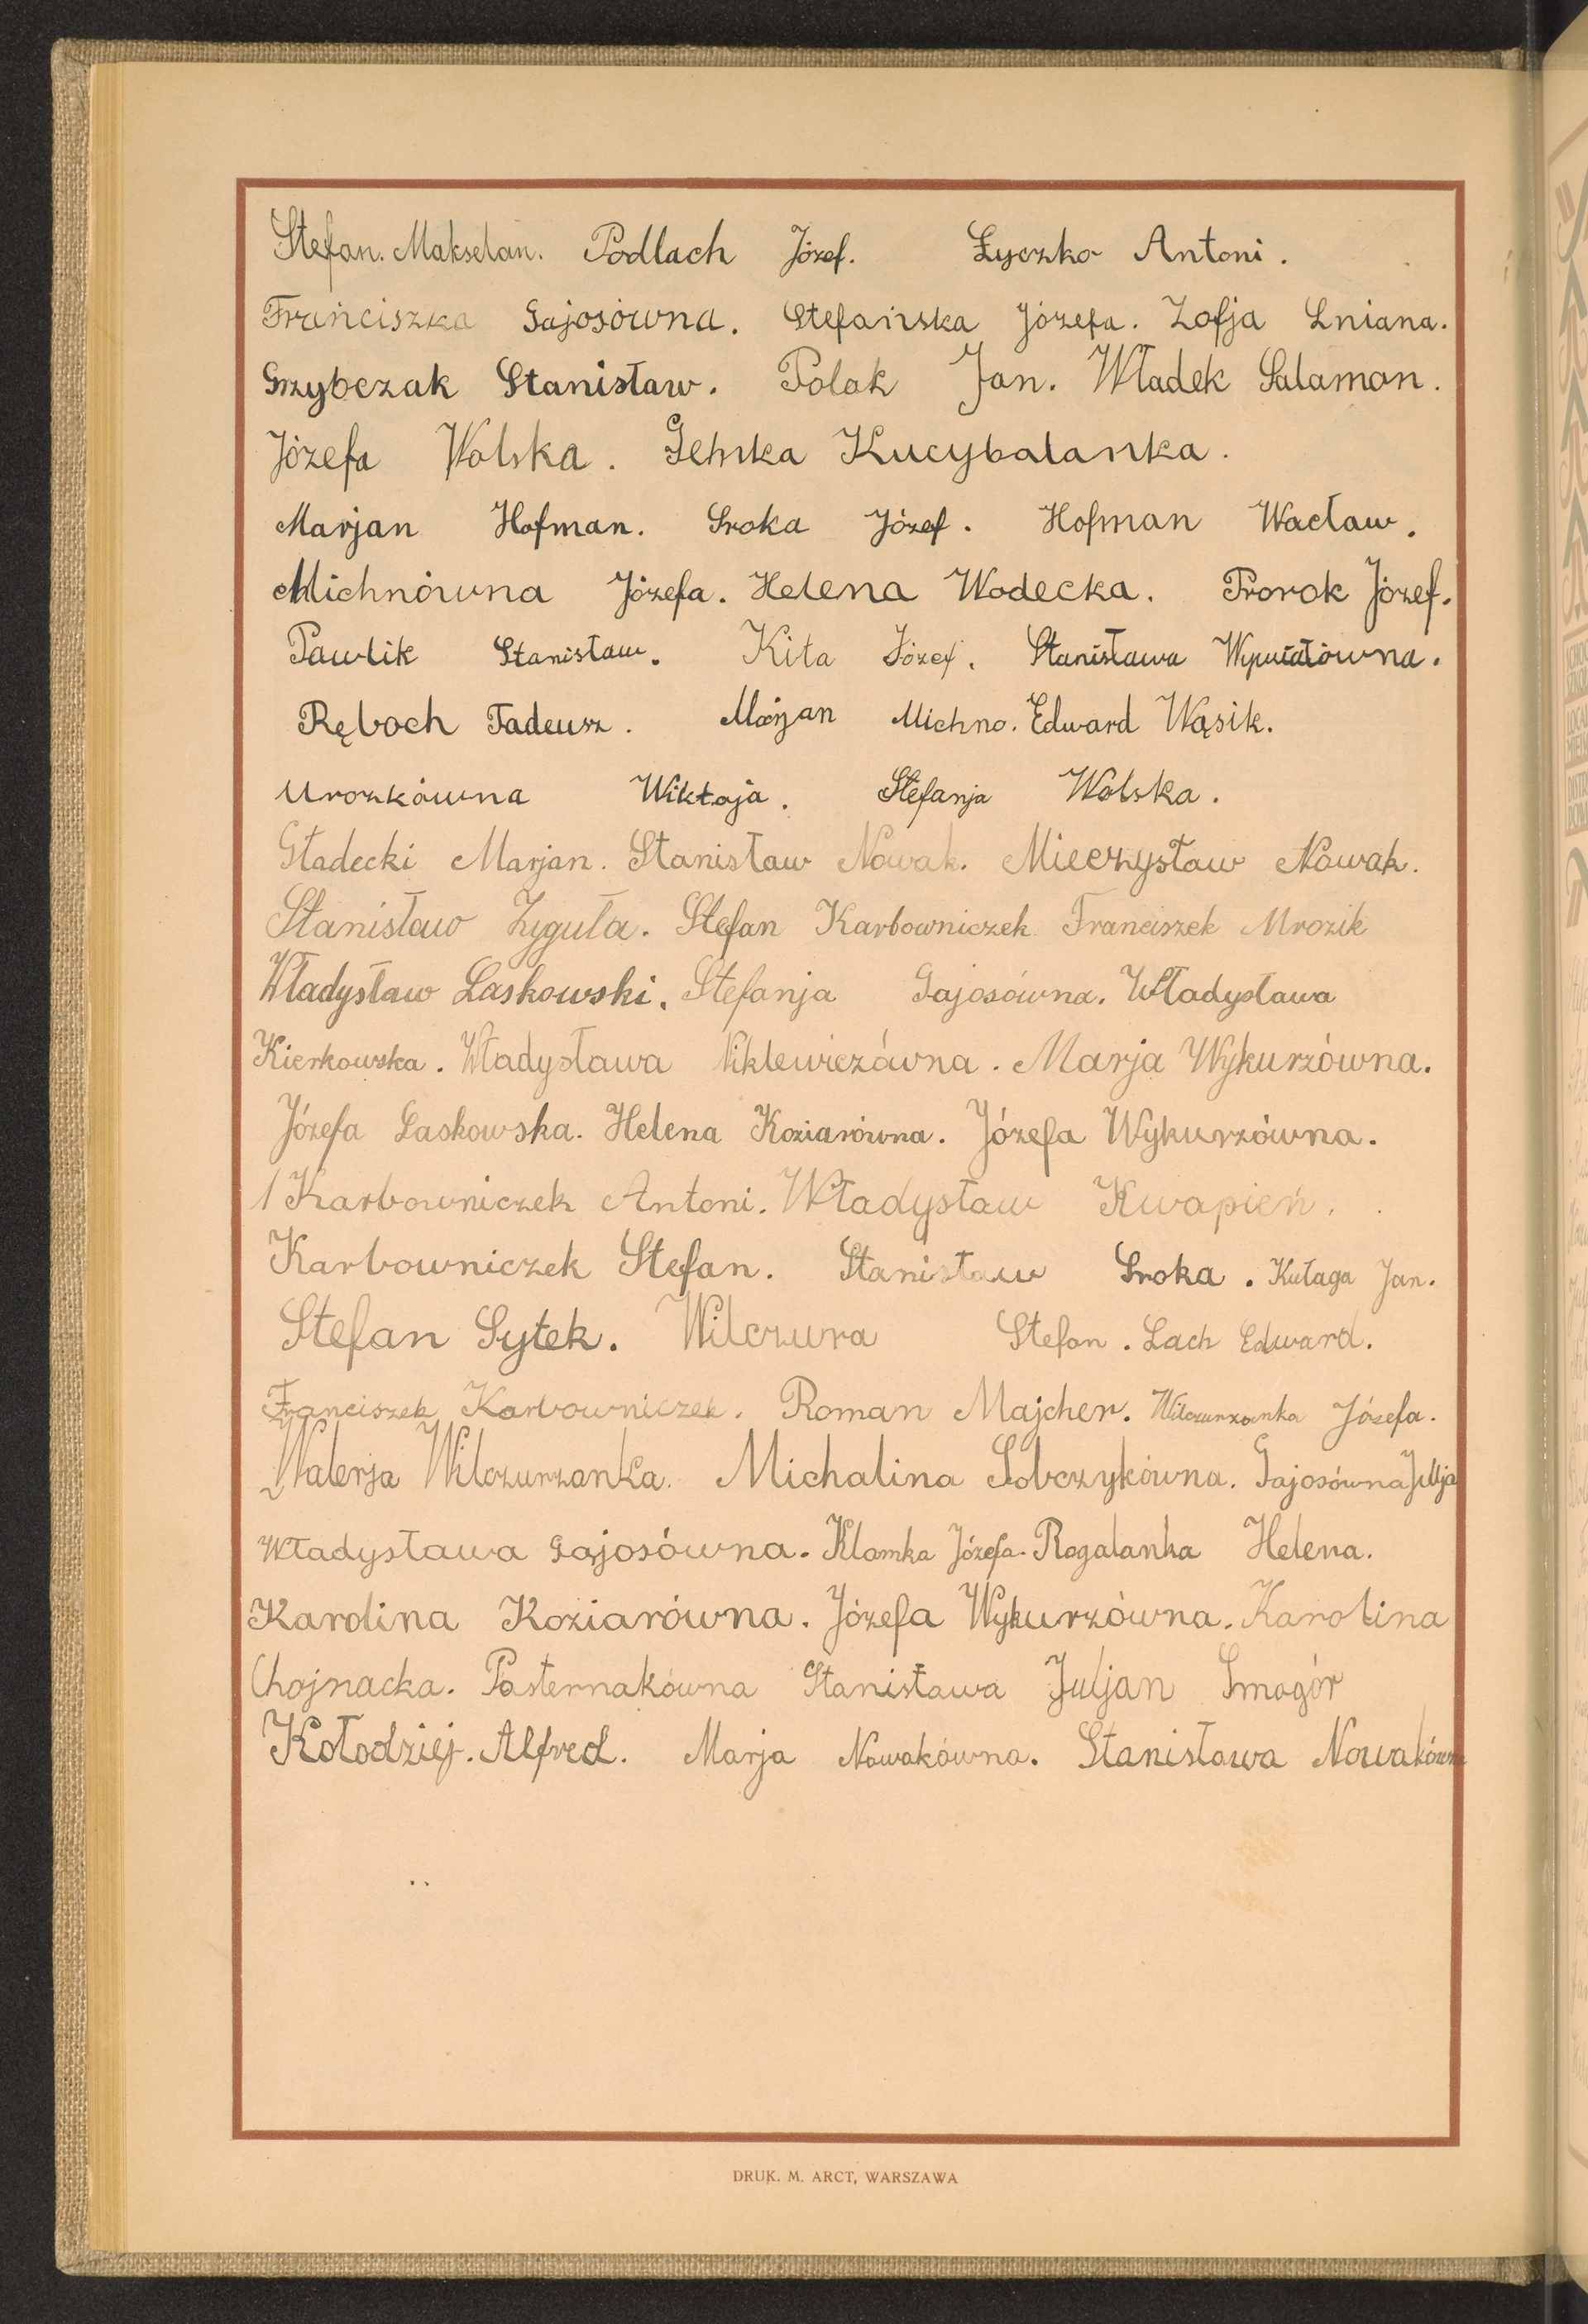 Stefan. Makselan. Podlach Józef. Łyczko Antoni.
Franciszka Gajosówna. Stefańska Józefa. Zofja Lniana.
Grzybczak Stanisław. Polak Jan. Władek Salamon.
Józefa Wolska. Kucybalanka.
Marjan Hofman. Sroka Józef. Hofman Wacław.
Michnówna Józefa. Helena Wodecka. Prorok Józef.
Pawlik Stanisław. Kita Józef. Stanisława
Ręboch Tadeusz. Marjan Michno. Edward Wąsik.
Mrozkówna Wiktoja. Stefanja Wolska.
Gładecki Marjan. Stanisław Nowak. Mieczysław Nowak.
Stanisław Zyguła. Stefan Karbowniczek Franciszek Mrozik
Władysław Laskowski. Stefanja Gajosówna. Władysława
Kierkowska. Władysława Niklewiczówna. Marja Wykurzówna.
Józefa Laskowska. Helena Koziarówna. Józefa Wykurzówna.
Karbowniczek Antoni. Władysław Kwapień.
Karbowniczek Stefan. Stanisław Sroka. Kułaga Jan.
Stefan Sytek. Wilczura Stefan. Lach Edward.
Franciszek Karbowniczek. Roman Majcher. Wilczurzanka Józefa.
Walerja Wilczurzanka. Michalina Sobczykówna. Gajosówna Julja
Władysława Gajosówna. Klamka Józefa. Rogalanka Helena.
Karolina Koziarówna. Józefa Wykurzówna. Karolina
Chojnacka. Pasternakówna Stanisława Juljan Smogór
Kołodziej. Alfred. Marja Nowakówna. Stanisława Nowakówna
DRUK. M. ARCT, WARSZAWA